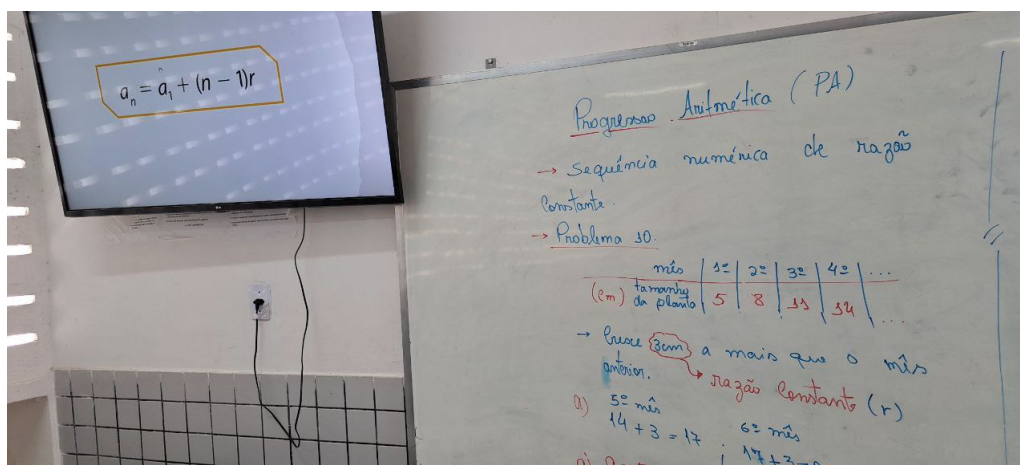 aₙ = a₁ + (n − 1)r
Progressão Aritmética (PA)
→ Sequência numérica de razão
Constante.
→ Problema 10.
mês | 1º | 2º | 3º | 4º | ...
(cm) tamanho da planta | 5 | 8 | 11 | 14 | ...
→ Cresce 3cm a mais que o mês
anterior.
razão Constante (r)
a) 5º mês
14 + 3 = 17 ;
6º mês
17 + 3 =